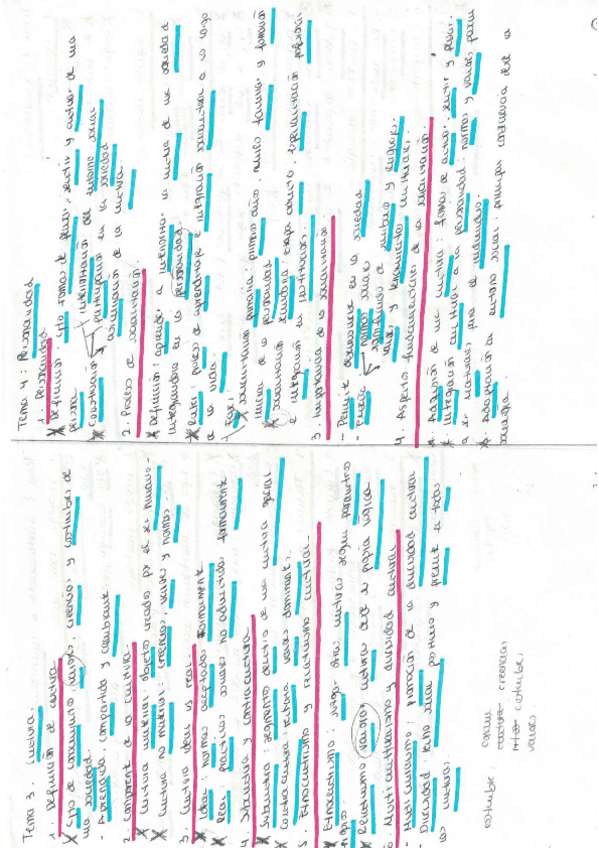 Tema 3. Cultura.
1. Definición de cultura.
* Cjto de conocimientos, valores, creencias y costumbres de
una sociedad.
- Aprendida, compartida y cambiante
2. Componentes de la cultura.
* Cultura material: objetos creados por el ser humano.
* Cultura no material: creencias, valores y normas.
3. Cultura ideal vs real.
* Ideal: normas aceptadas formalmente.
* Real: prácticas sociales no admitidas formalmente
4. Subcultura y contracultura.
* Subcultura: segmento dentro de una cultura general.
* Contracultura: rechaza valores dominantes.
5. Etnocentrismo y relativismo cultural.
* Etnocentrismo: juzgar otras culturas según parámetros
propios.
* Relativismo: valorar culturas desde su propia lógica.
6. Multiculturalismo y diversidad cultural.
- Multiculturalismo: promoción de la diversidad cultural
- Diversidad: hecho social positivo y
las culturas.
costumbre:
creencias
costumbres
valores
Tema 4: Personalidad
1. Personalidad.
* Definición: cjto formas de pensar, sentir y actuar de una
persona.
* Constitución
interiorización del entorno social
participación en la sociedad
asimilación de la cultura.
2. Proceso de socialización.
* Definición: aprender a interiorizar la cultura de una sociedad
integrándola en la personalidad.
* Rocher: proceso de aprendizaje e integración sociocultural a lo largo
de la vida.
* Fases
* Socialización primaria: primeros años, núcleo familiar y formación
inicial de la personalidad
* Socialización secundaria: etapa adulta, especialización profesional
e integración en instituciones.
3. Importancia de la socialización
- Permite desenvolverse en la sociedad
- Enseña
normas sociales
significados de símbolos y lenguaje.
valores y elementos culturales.
4. Aspectos fundamentales de la socialización.
* Adquisición de una cultura: formas de actuar, sentir y pensar.
* Integración cultural a la personalidad: normas y valores pasan
a ser naturales para el individuo.
* Adaptación al entorno social: principal consecuencia desde la
sociología.